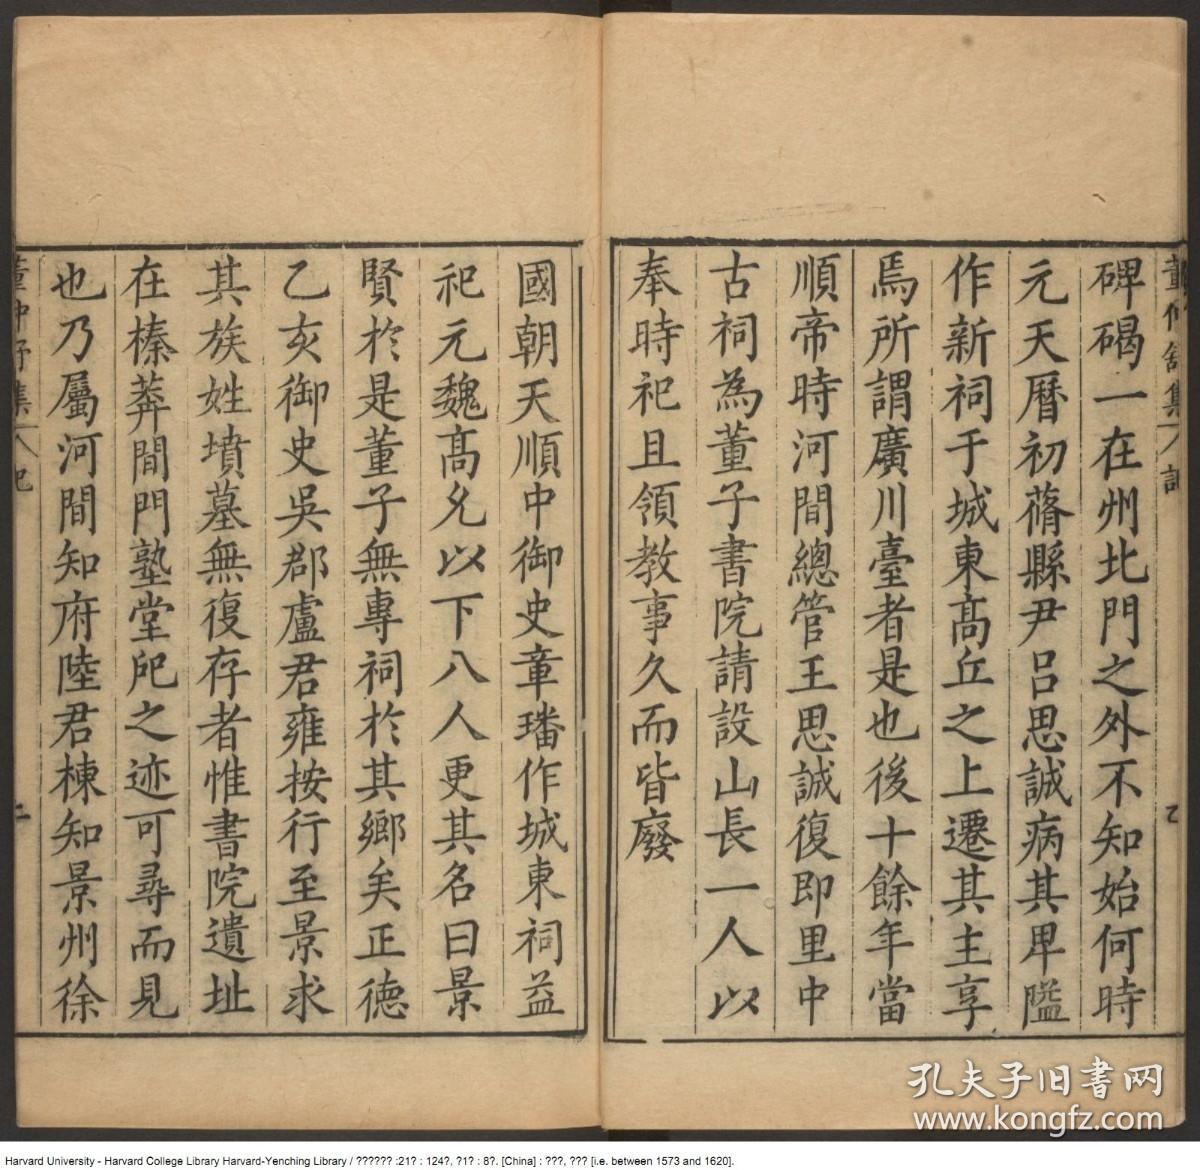 碑碣一在州北門之外不知始何時
元天曆初蓨縣尹吕思誠病其卑隘
作新祠于城東髙丘之上遷其主享
焉所謂廣川臺者是也後十餘年當
順帝時河間總管王思誠復即里中
古祠為董子書院請設山長一人以
奉時祀且領教事久而皆廢
國朝天順中御史章璠作城東祠益
祀元魏髙允以下八人更其名曰景
賢於是董子無專祠於其鄉矣正德
乙亥御史吳郡盧君雍按行至景求
其族姓墳墓無復存者惟書院遺址
在榛莽間門塾堂戺之迹可尋而見
也乃屬河間知府陸君棟知景州徐
董仲舒集
孔夫子旧书网
www.kongfz.com
Harvard University - Harvard College Library Harvard-Yenching Library / ?????? :21? : 124?, ?1? : 8?. [China] : ???, ??? [i.e. between 1573 and 1620].